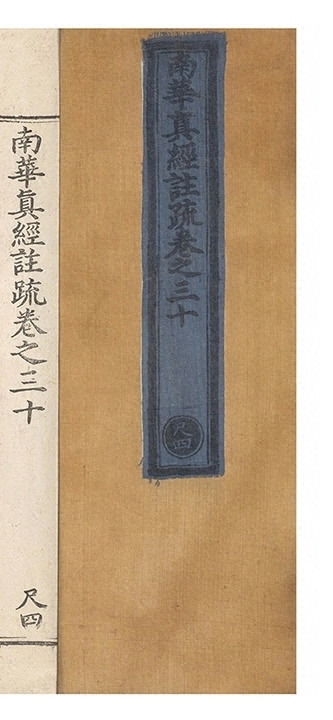 南華真經註疏卷之三十
尺四
南華真經註疏卷之三十
尺四